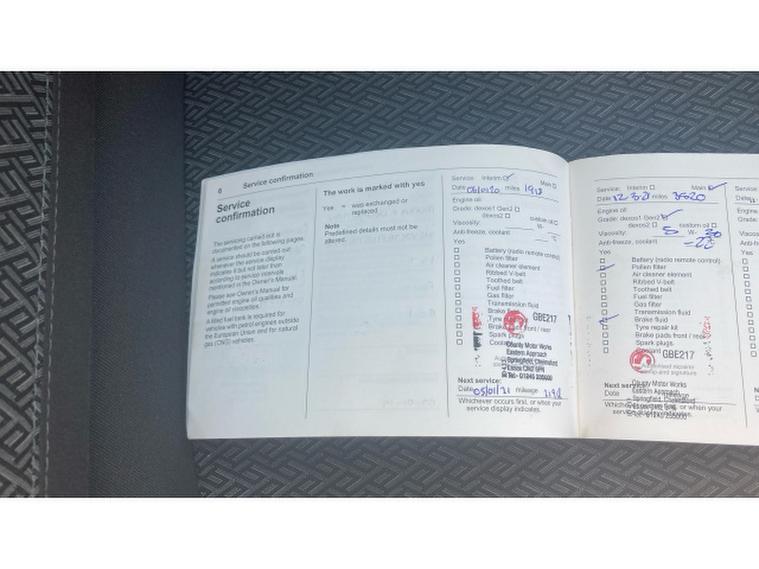 6 Service confirmation
Service
confirmation
The servicing carried out is
documented on the following pages.
A service should be carried out
whenever the service display
indicates it but not later than
according to service intervals
mentioned in the Owner's Manual.
Please see Owner's Manual for
permitted engine oil qualities and
engine oil viscosities.
A filled fuel tank is required for
vehicles with petrol engines outside
the European Union and for natural
gas (CNG) vehicles.
The work is marked with yes
Yes = was exchanged or
replaced
Note
Predefined details must not be
altered.
Service: Interim Main
Date 06/01/20 miles
Engine oil
Grade: dexos1 Gen2
dexos2 custom oil
Viscosity: W-
Anti-freeze, coolant °C
Yes
Battery (radio remote control)
Pollen filter
Air cleaner element
Ribbed V-belt
Toothed belt
Fuel filter
Gas filter
Transmission fluid
Brake
Tyre
Brake pads front / rear
Spark plugs
GBE217
County Motor Works
Eastern Approach
Springfield, Chelmsford
Essex CM2 6PN
Tel:- 01245
Next service:
Date 05/01/21 mileage
Whichever occurs first, or when your
service display indicates.
Service: Interim Main
Date 12-3-21 miles 3620
Engine oil
Grade: dexos1 Gen2
dexos2 custom oil
Viscosity: 5 W- 30
Anti-freeze, coolant -22
Yes
Battery (radio remote control)
Pollen filter
Air cleaner element
Ribbed V-belt
Toothed belt
Fuel filter
Gas filter
Transmission fluid
Brake fluid
Tyre repair kit
Brake pads front / rear
Spark plugs
Coolant
GBE217
Authorised repairer
stamp and signature
County Motor Works
Eastern Approach
Springfield, Chelmsford
Next service:
Date mileage
Whichever occurs first, or when your
service display indicates.
Service
Date
Engine oil
Grade:
Viscosity
Anti-f
Yes